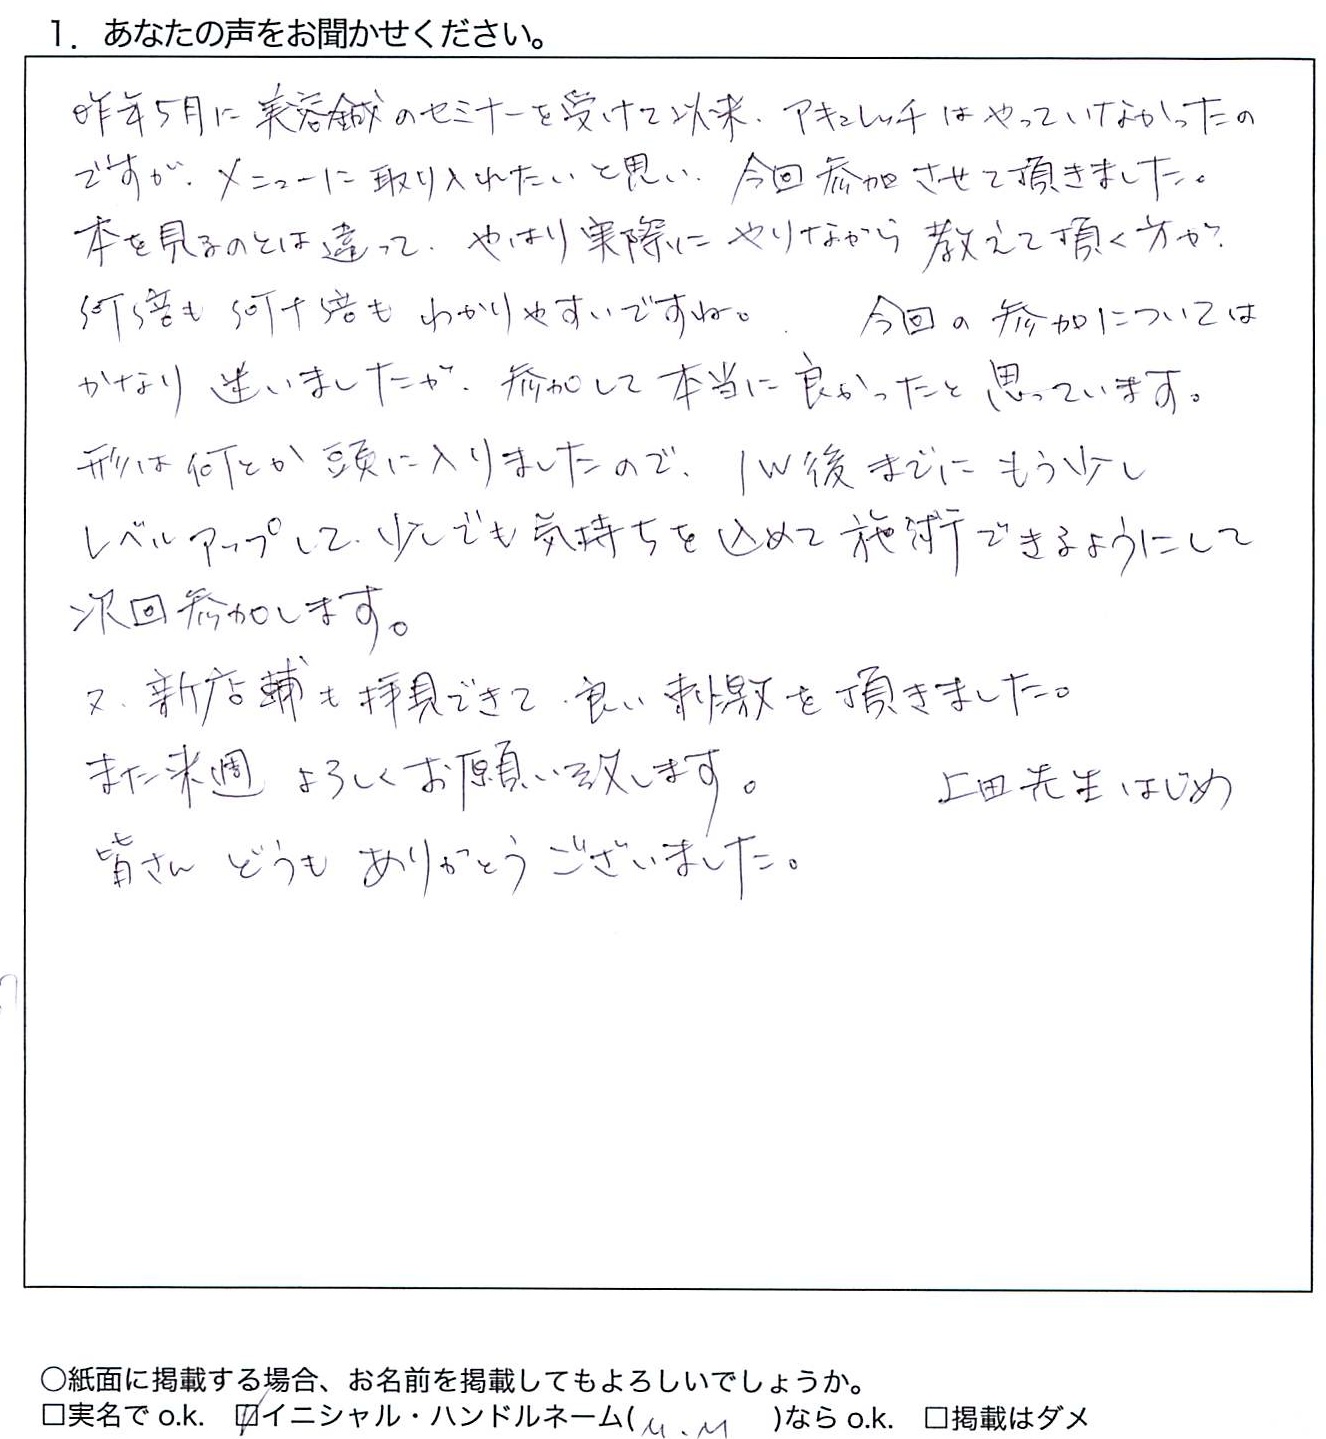 1. あなたの声をお聞かせください。
昨年5月に美容鍼のセミナーを受けて以来、アキュレッチはやっていなかったの
ですが、メニューに取り入れたいと思い、今回参加させて頂きました。
本を見るのとは違って、やはり実際にやりながら教えて頂く方が、
何倍も何十倍もわかりやすいですね。 今回の参加については
かなり迷いましたが、参加して本当に良かったと思っています。
形は何とか頭に入りましたので、1W後までにもう少し
レベルアップして、少しでも気持ちを込めて施術できるようにして
次回参加します。
又、新店舗も拝見できて、良い刺激を頂きました。
また来週 よろしくお願い致します。 上田先生はじめ
皆さん どうも ありがとうございました。
○紙面に掲載する場合、お名前を掲載してもよろしいでしょうか。
□実名で o.k. ☑イニシャル・ハンドルネーム(M.M )なら o.k. □掲載はダメ